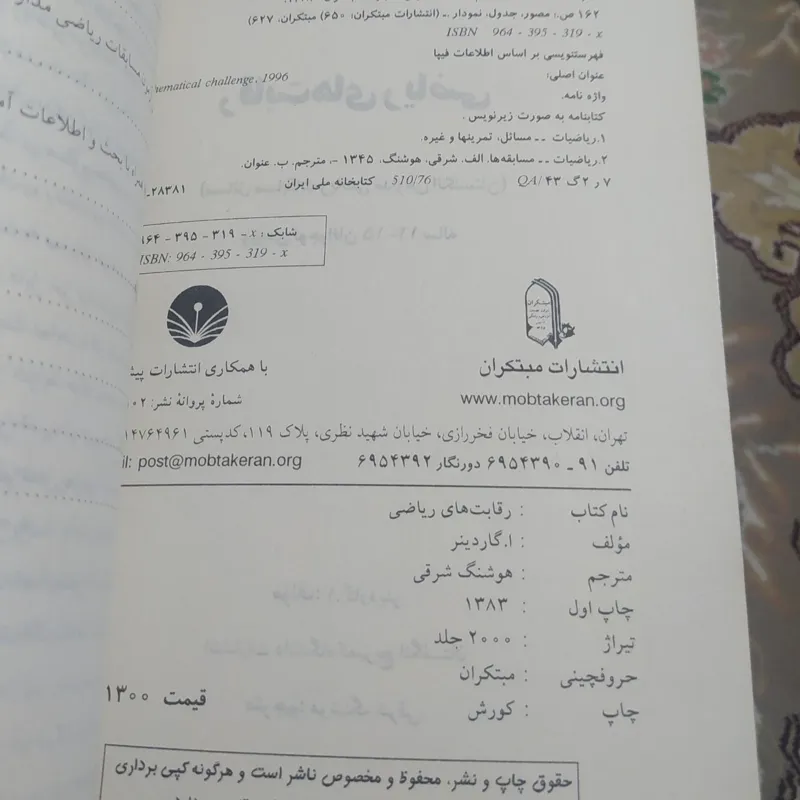 ۱۶۲ ص.: مصور، جدول، نمودار .ـ (انتشارات مبتکران؛ ۶۵۰) مبتکران، ۶۲۷)
ISBN 964 - 395 - 319 - x
فهرستنویسی بر اساس اطلاعات فیپا
عنوان اصلی:
mathematical challenge, 1996
واژه نامه.
کتابنامه به صورت زیرنویس.
۱.ریاضیات -- مسائل، تمرینها و غیره.
۲.ریاضیات -- مسابقه‌ها. الف. شرقی، هوشنگ، ۱۳۴۵ -، مترجم. ب. عنوان.
۷ ر ۲ گ QA/ ۴۳
510/76
کتابخانه ملی ایران
۲۸۳۸۱
شابک: x - ۳۱۹ - ۳۹۵ - ۹۶۴
ISBN: 964 - 395 - 319 - x
مبتکران
انتشارات مبتکران
با همکاری انتشارات
www.mobtakeran.org
شمارهٔ پروانهٔ نشر: ۰۲
تهران، انقلاب، خیابان فخررازی، خیابان شهید نظری، پلاک ۱۱۹، کدپستی ۱۴۷۶۴۹۶۱
تلفن ۹۱ - ۶۹۵۴۳۹۰ دورنگار ۶۹۵۴۳۹۲
il: post@mobtakeran.org
نام کتاب : رقابت‌های ریاضی
مؤلف : ا.گاردینر
مترجم : هوشنگ شرقی
چاپ اول : ۱۳۸۳
تیراژ : ۲۰۰۰ جلد
حروفچینی : مبتکران
چاپ : کورش
قیمت ۱۳۰۰
حقوق چاپ و نشر، محفوظ و مخصوص ناشر است و هرگونه کپی برداری
مسابقات ریاضی
بحث و اطلاعات